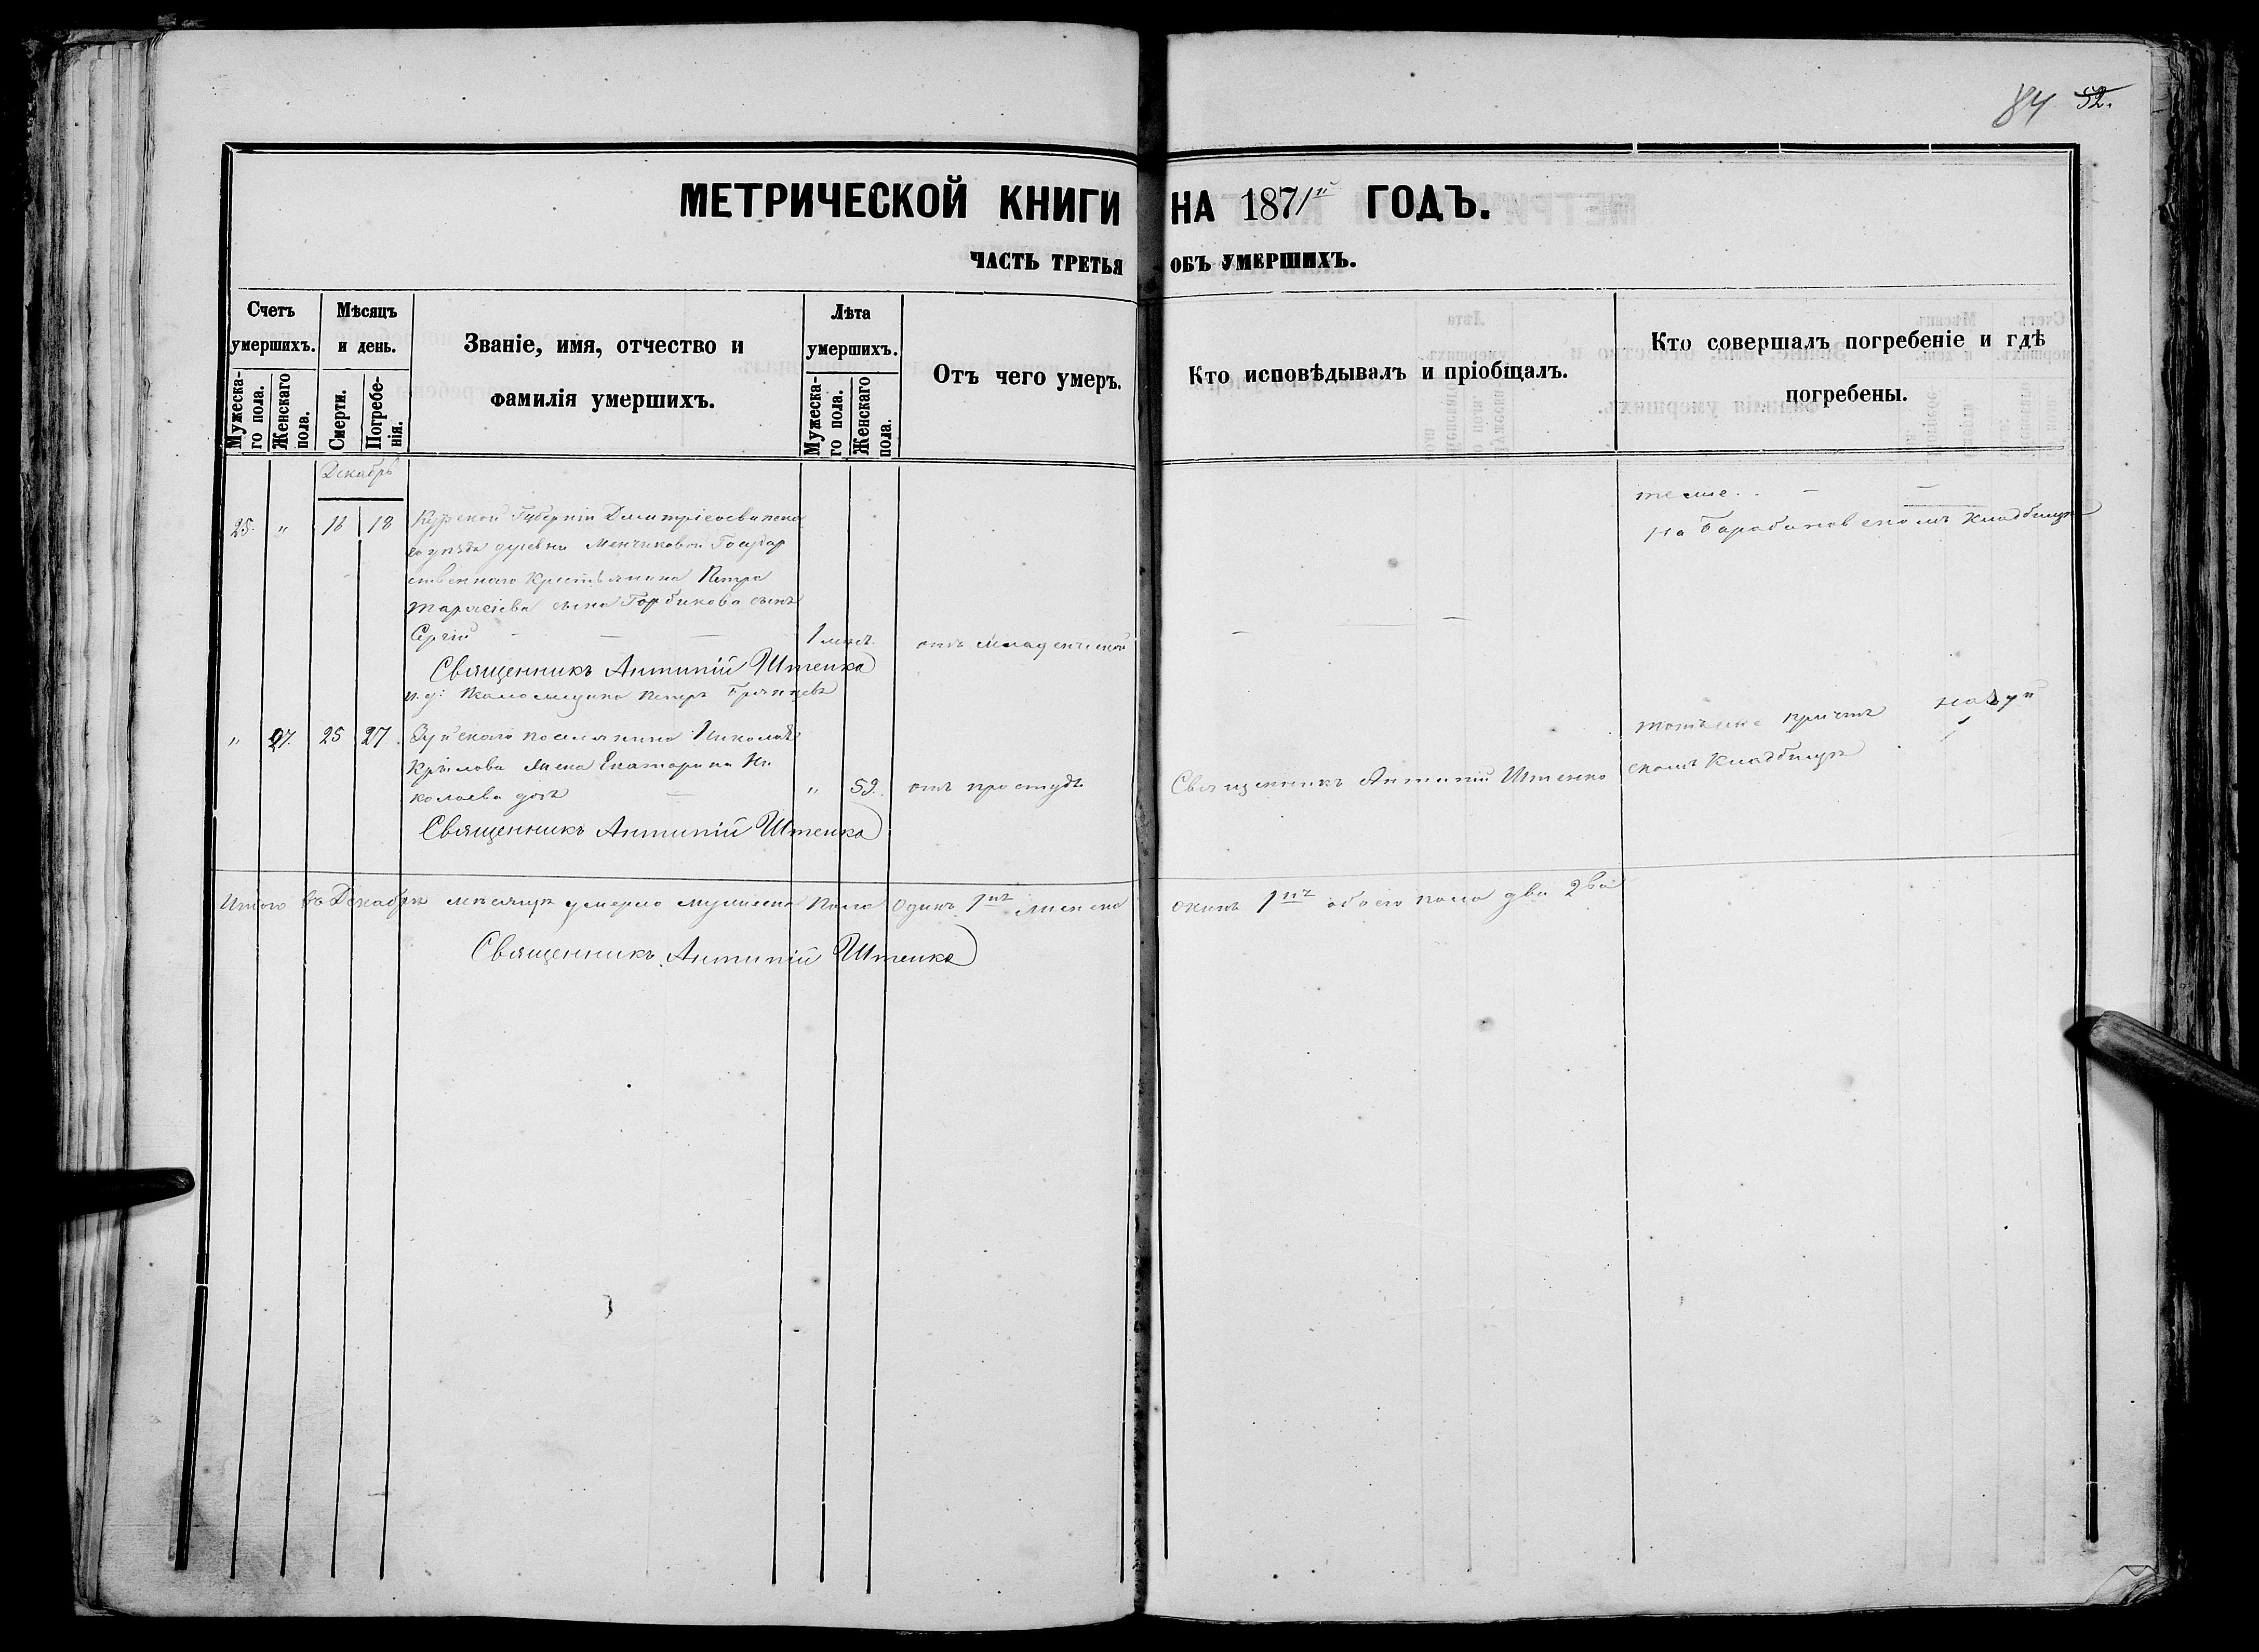 84 52.
МЕТРИЧЕСКОЙ КНИГИ НА 1871й ГОДЪ.
ЧАСТЬ ТРЕТЬЯ ОБЪ УМЕРШИХЪ.
Счетъ умершихъ.
Мужеска-го пола.
Женскаго пола.
Мѣсяцъ и день.
Смерти.
Погребе-нія.
Званіе, имя, отчество и
фамилія умершихъ.
Лѣта умершихъ.
Мужеска-го пола.
Женскаго пола.
Отъ чего умеръ.
Кто исповѣдывалъ и пріобщалъ.
Кто совершалъ погребеніе и гдѣ
погребены.
Декабрь
25. " 16 18 Курской Губерніи Дмитріевскаго
уѣзда деревни Менчиковой Государ
ственнаго Крестьянина Петра
Тарасіева сына Горбикова сынъ
Сергій 1 мѣс. отъ младенческой
теже.
на Барабановскомъ Кладбищѣ
Священникъ Антипій Штенко
и. д. Псаломщика Петръ Грянцевъ
" 27. 25 27. Зуйскаго поселянина Николая
Крылова жена Екатарина Ни
колаева дочь " 59. отъ простуды Священникъ Антипій Штенко
тотъ же причтъ на Зуй
скомъ Кладбищѣ
Священникъ Антипій Штенко
Итого въ Декабрѣ мѣсяцѣ умерло мужеска пола одинъ 1нъ женска одинъ 1нъ обоего пола два 2ва
Священникъ Антипій Штенко